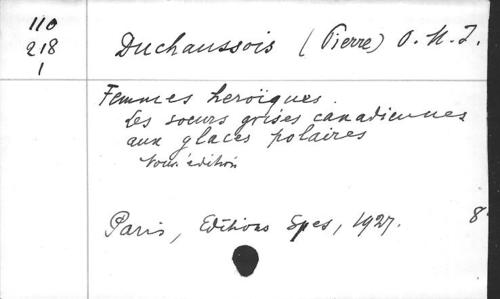 110
218
1
Duchaussois (Pierre) O. M. I.
Femmes heroïques.
Les soeurs grises canadiennes
aux glaces polaires
Nouv. édition
Paris, Editions Spes, 1927. 8°